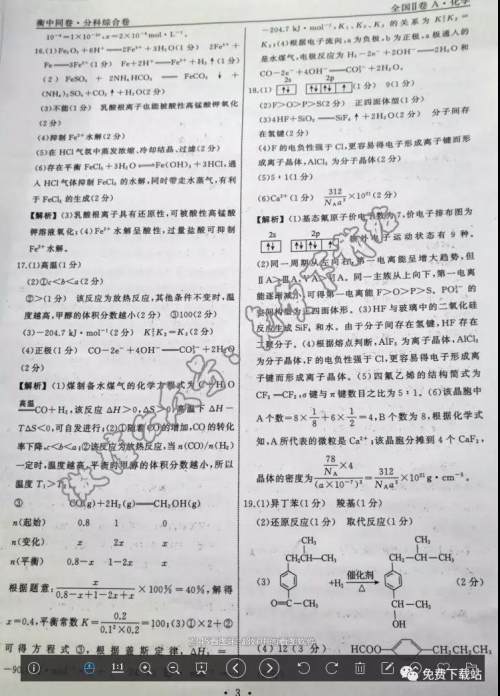 衡中同卷·分科综合卷
全国Ⅱ卷 A·化学
10⁻⁴=1×10⁻²⁰,x=2×10⁻⁴mol·L⁻¹。
16.(1)Fe₂O₃+6H⁺══2Fe³⁺+3H₂O(1分) 2Fe³⁺+
Fe══3Fe²⁺(1分) Fe+2H⁺══Fe²⁺+H₂↑(1分)
(2)FeSO₄+2NH₄HCO₃══FeCO₃↓+
(NH₄)₂SO₄+CO₂↑+H₂O(2分)
(3)不能(1分) 乳酸根离子也能被酸性高锰酸钾氧化
(2分)
(4)抑制Fe²⁺水解(2分)
(5)在HCl气氛中蒸发浓缩、冷却结晶、过滤(2分)
(6)存在平衡FeCl₃+3H₂O══Fe(OH)₃+3HCl,通
入HCl气体抑制FeCl₃的水解,同时带走水蒸气,有利
于FeCl₃的生成(2分)
【解析】(3)乳酸根离子具有还原性,可被酸性高锰酸
钾溶液氧化;(4)Fe²⁺水解呈酸性,过量盐酸可抑制
Fe²⁺水解。
17.(1)高温(1分)
(2)①c<b<a(2分)
②>(1分) 该反应为放热反应,其他条件不变时,温
度越高,甲醇的体积分数越小(2分) ③100(2分)
(3)-204.7 kJ·mol⁻¹(2分)
(4)正极(1分) CO-2e⁻+4OH⁻══CO₃²⁻+2H₂O
(2分)
【解析】(1)煤制备水煤气的化学方程式为C+H₂O
高温══CO+H₂,该反应ΔH>0,ΔS>0,高温下ΔH-
TΔS<0,可自发进行;(2)①随着CO的增加,CO的转化
率下降,c<b<a;②该反应为放热反应,当n(CO)/n(H₂)
一定时,温度越高,平衡时甲醇的体积分数越小,所以
温度T₁>T₂
③ CO(g)+2H₂(g)══CH₃OH(g)
n(起始) 0.8 1 0
n(变化) x 2x x
n(平衡) 0.8-x 1-2x x
根据题意: x/(0.8-x+1-2x+x)×100%=40%,解得
x=0.4,平衡常数K=0.2/(0.1²×0.2)=100;(3)①×2+②
可得方程式③,根据盖斯定律,
-204.7 kJ·mol⁻¹,
(4)根据电子流向,a为负极,b为正极,a极通入的
是水煤气,电极反应为H₂-2e⁻+2OH⁻══2H₂O和
CO-2e⁻+4OH⁻══CO₃²⁻+2H₂O。
18.(1) 2s 2p (1分) 9(1分)
(2)F>O>P>S(2分) 正四面体型(1分)
(3)4HF+SiO₂══SiF₄↑+2H₂O(2分) 分子间存
在氢键(2分)
(4)F的电负性强于Cl,更容易得电子形成离子键而形
成离子晶体,AlCl₃为分子晶体(2分)
(5)5∶1(1分)
(6)Ca²⁺(1分) 312/(N_A a³)×10²¹(2分)
【解析】(1)基态氟原子价电子数为7,价电子排布图为
2s 2p 核外电子运动状态有9种。
(2)同一周期从左向右,第一电离能呈增大趋势,但
ⅡA>ⅢA,ⅤA>ⅥA。同一主族从上向下,第一电离
能逐渐减小,可得第一电离能F>O>P>S。PO₄³⁻的
空间构型为正四面体形。(3)HF与玻璃中的二氧化硅
反应生成SiF₄和水。由于分子间存在氢键,HF存在
二聚分子。(4)根据熔点判断,AlF₃为离子晶体,AlCl₃
为分子晶体,F的电负性强于Cl,更容易得电子形成离
子键而形成离子晶体。(5)四氟乙烯的结构简式为
CF₂═CF₂,σ键与π键数目之比为5∶1。(6)该晶胞中
A个数=8×1/8+6×1/2=4,B个数为8,根据化学式
知,A所代表的微粒是Ca²⁺;该晶胞分摊到4个CaF₂,
晶体的密度为 (78/N_A×4)/(a×10⁻⁷)³=312/(N_A a³)×10²¹ g·cm⁻³。
19.(1)异丁苯(1分) 羧基(1分)
(2)还原反应(1分) 取代反应(1分)
CH₃ CH₃
CH₂CH—CH₃ CH₂—CH—CH₃
(3) +H₂ 催化剂 △ (2分)
O═C—CH₃ CH—CH₃
OH
(4)12(3分) HCOO— —CH₂CH₂CH₃
1:1
免费下载站
·3·